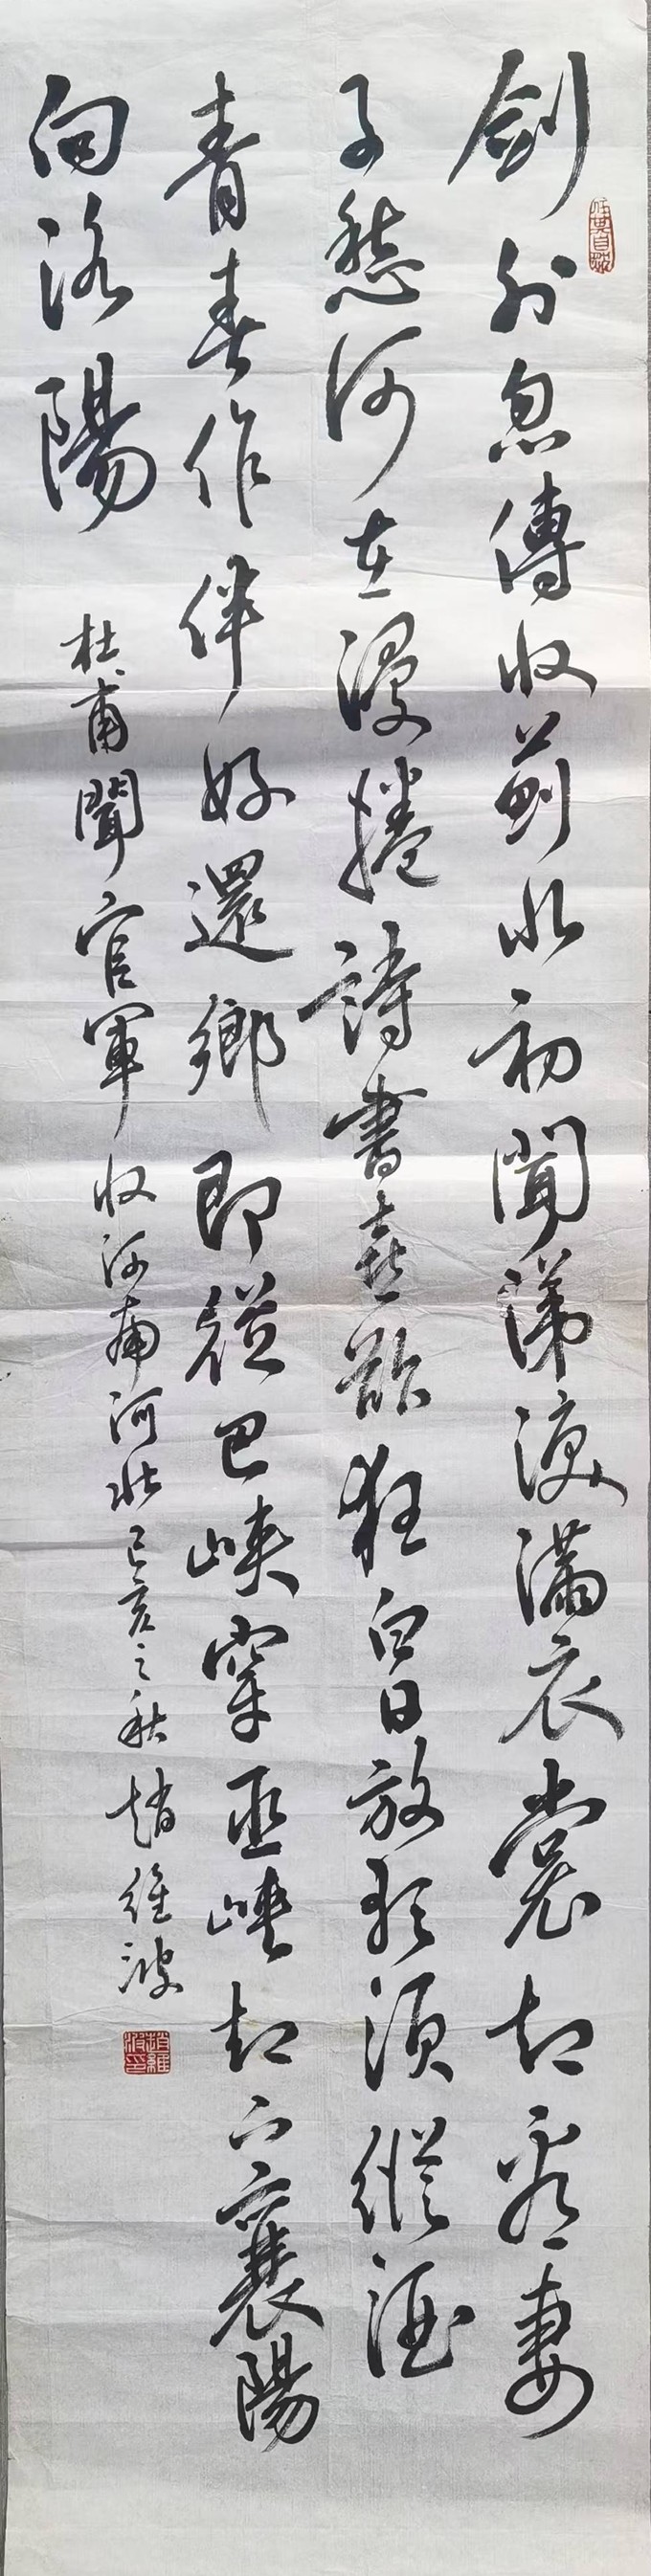 劍外忽傳收薊北初聞涕淚滿衣裳却看妻
子愁何在漫捲詩書喜欲狂白日放歌須縱酒
青春作伴好還鄉即從巴峽穿巫峽却下襄陽
向洛陽
杜甫聞官軍收河南河北己亥之秋趙維波
趙維波印